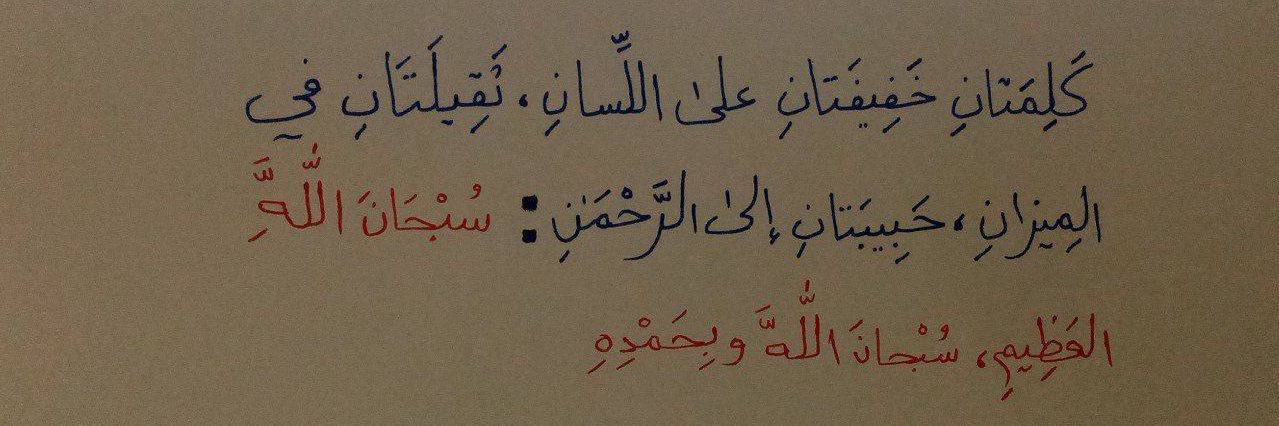 كَلِمَتانِ خَفِيفَتانِ علىٰ اللِّسانِ، ثَقِيلَتَانِ في
المِيزانِ، حَبِيبَتانِ إلىٰ الرَّحْمَنِ: سُبْحَانَ اللَّهِ
العَظِيمِ، سُبْحانَ اللَّهِ وبِحَمْدِهِ